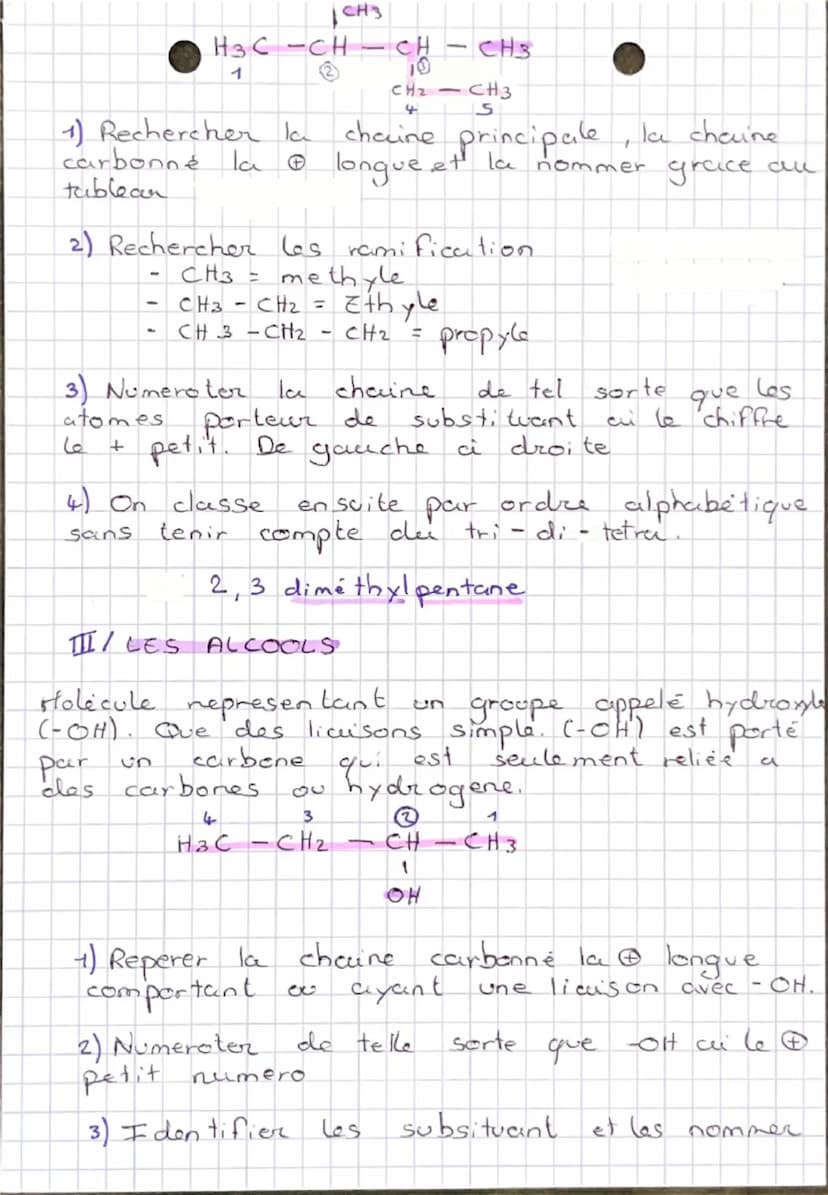 CH3
H3C - CH - CH - CH3
1 2 3
CH2 - CH3
4 5
1) Rechercher la chaine principale, la chaine
carbonné la ⊕ longue et la nommer grace au
tableau
2) Rechercher les ramification
- CH3 = methyle
- CH3 - CH2 = Ethyle
- CH3 - CH2 - CH2 = propyle
3) Numeroter la chaine de tel sorte que les
atomes porteur de substituant ai le chiffre
le + petit. De gauche à droite
4) On classe ensuite par ordre alphabétique
sans tenir compte du tri - di - tetra.
2,3 diméthylpentane
III / LES ALCOOLS
Molécule representant un groupe appelé hydroxyle
(-OH). Que des liaisons simple. (-OH) est porté
par un carbone qui est seulement reliée a
des carbones ou hydrogene.
4 3 2 1
H3C - CH2 - CH - CH3
OH
1) Reperer la chaine carbonné la ⊕ longue
comportant ou ayant une liaison avec - OH.
2) Numeroter de telle sorte que -OH ai le ⊕
petit numero
3) Identifier les subsituant et les nommer